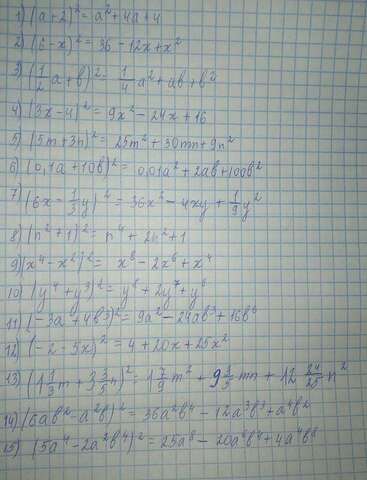 1) (a+2)² = a²+4a+4
2) (6-x)² = 36-12x+x²
3) (1/2 a+b)² = 1/4 a²+ab+b²
4) (3x-4)² = 9x²-24x+16
5) (5m+3n)² = 25m²+30mn+9n²
6) (0,1a+10b)² = 0,01a²+2ab+100b²
7) (6x-1/3 y)² = 36x²-4xy+1/9 y²
8) (n²+1)² = n⁴+2n²+1
9) (x⁴-x²)² = x⁸-2x⁶+x⁴
10) (y⁴+y³)² = y⁸+2y⁷+y⁶
11) (-3a+4b³)² = 9a²-24ab³+16b⁶
12) (-2-5x)² = 4+20x+25x²
13) (1 1/3 m+3 3/5 n)² = 1 7/9 m²+9 3/5 mn+12 24/25 n²
14) (6ab²-a²b)² = 36a²b⁴-12a³b³+a⁴b²
15) (5a⁴-2a²b⁴)² = 25a⁸-20a⁶b⁴+4a⁴b⁸